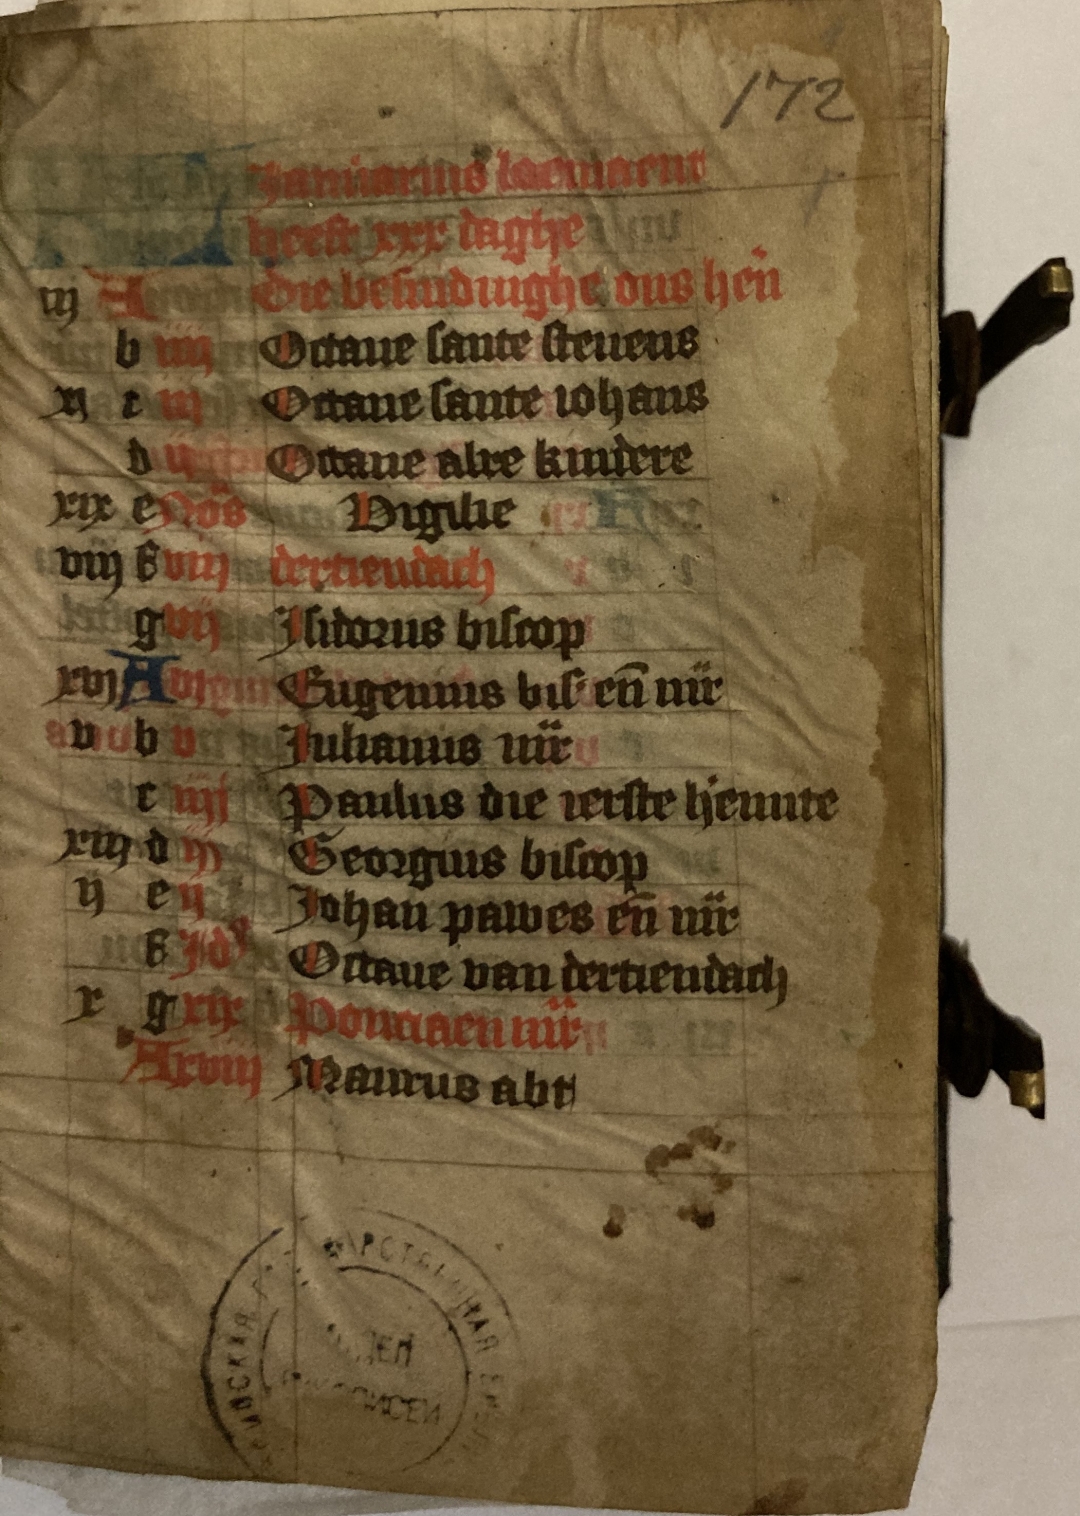 172
Januarius loemaent
heeft xxx daghe
iij A Die besnidinghe ons hen̄
b iiij Octaue sante steuens
xi c iij Octaue sante iohans
d ij Octaue alre kindere
xix e Nōs Vigilie
viij f viij dertiendach
g vij Isidorus biscop
xvj A vi Eugenius bis en̄ mr̄
v b v Iulianus mr̄
c iiij Paulus die ierste h'emite
xiij d iij Georgius biscop
ij e ij Johan pawes en̄ mr̄
f Id' Octaue van dertiendach
x g xix Ponciaen mr̄
A xviij Maurus abt